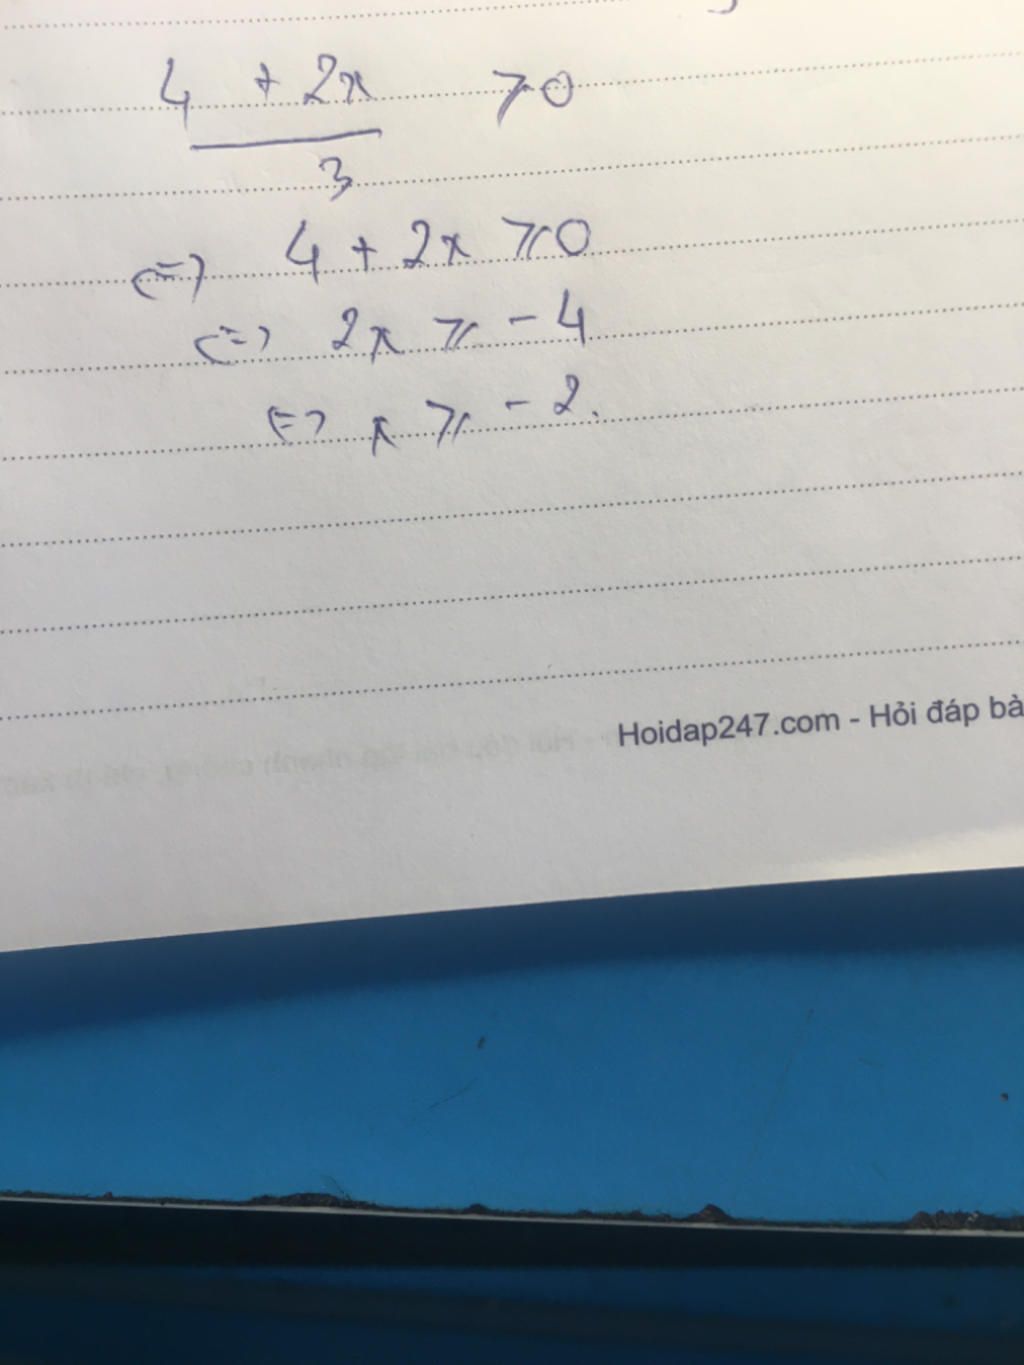 4 + 2x ⩾0
3
<=> 4 + 2x ⩾0
<=> 2x ⩾ - 4
<=> x ⩾ - 2.
Hoidap247.com - Hỏi đáp bà